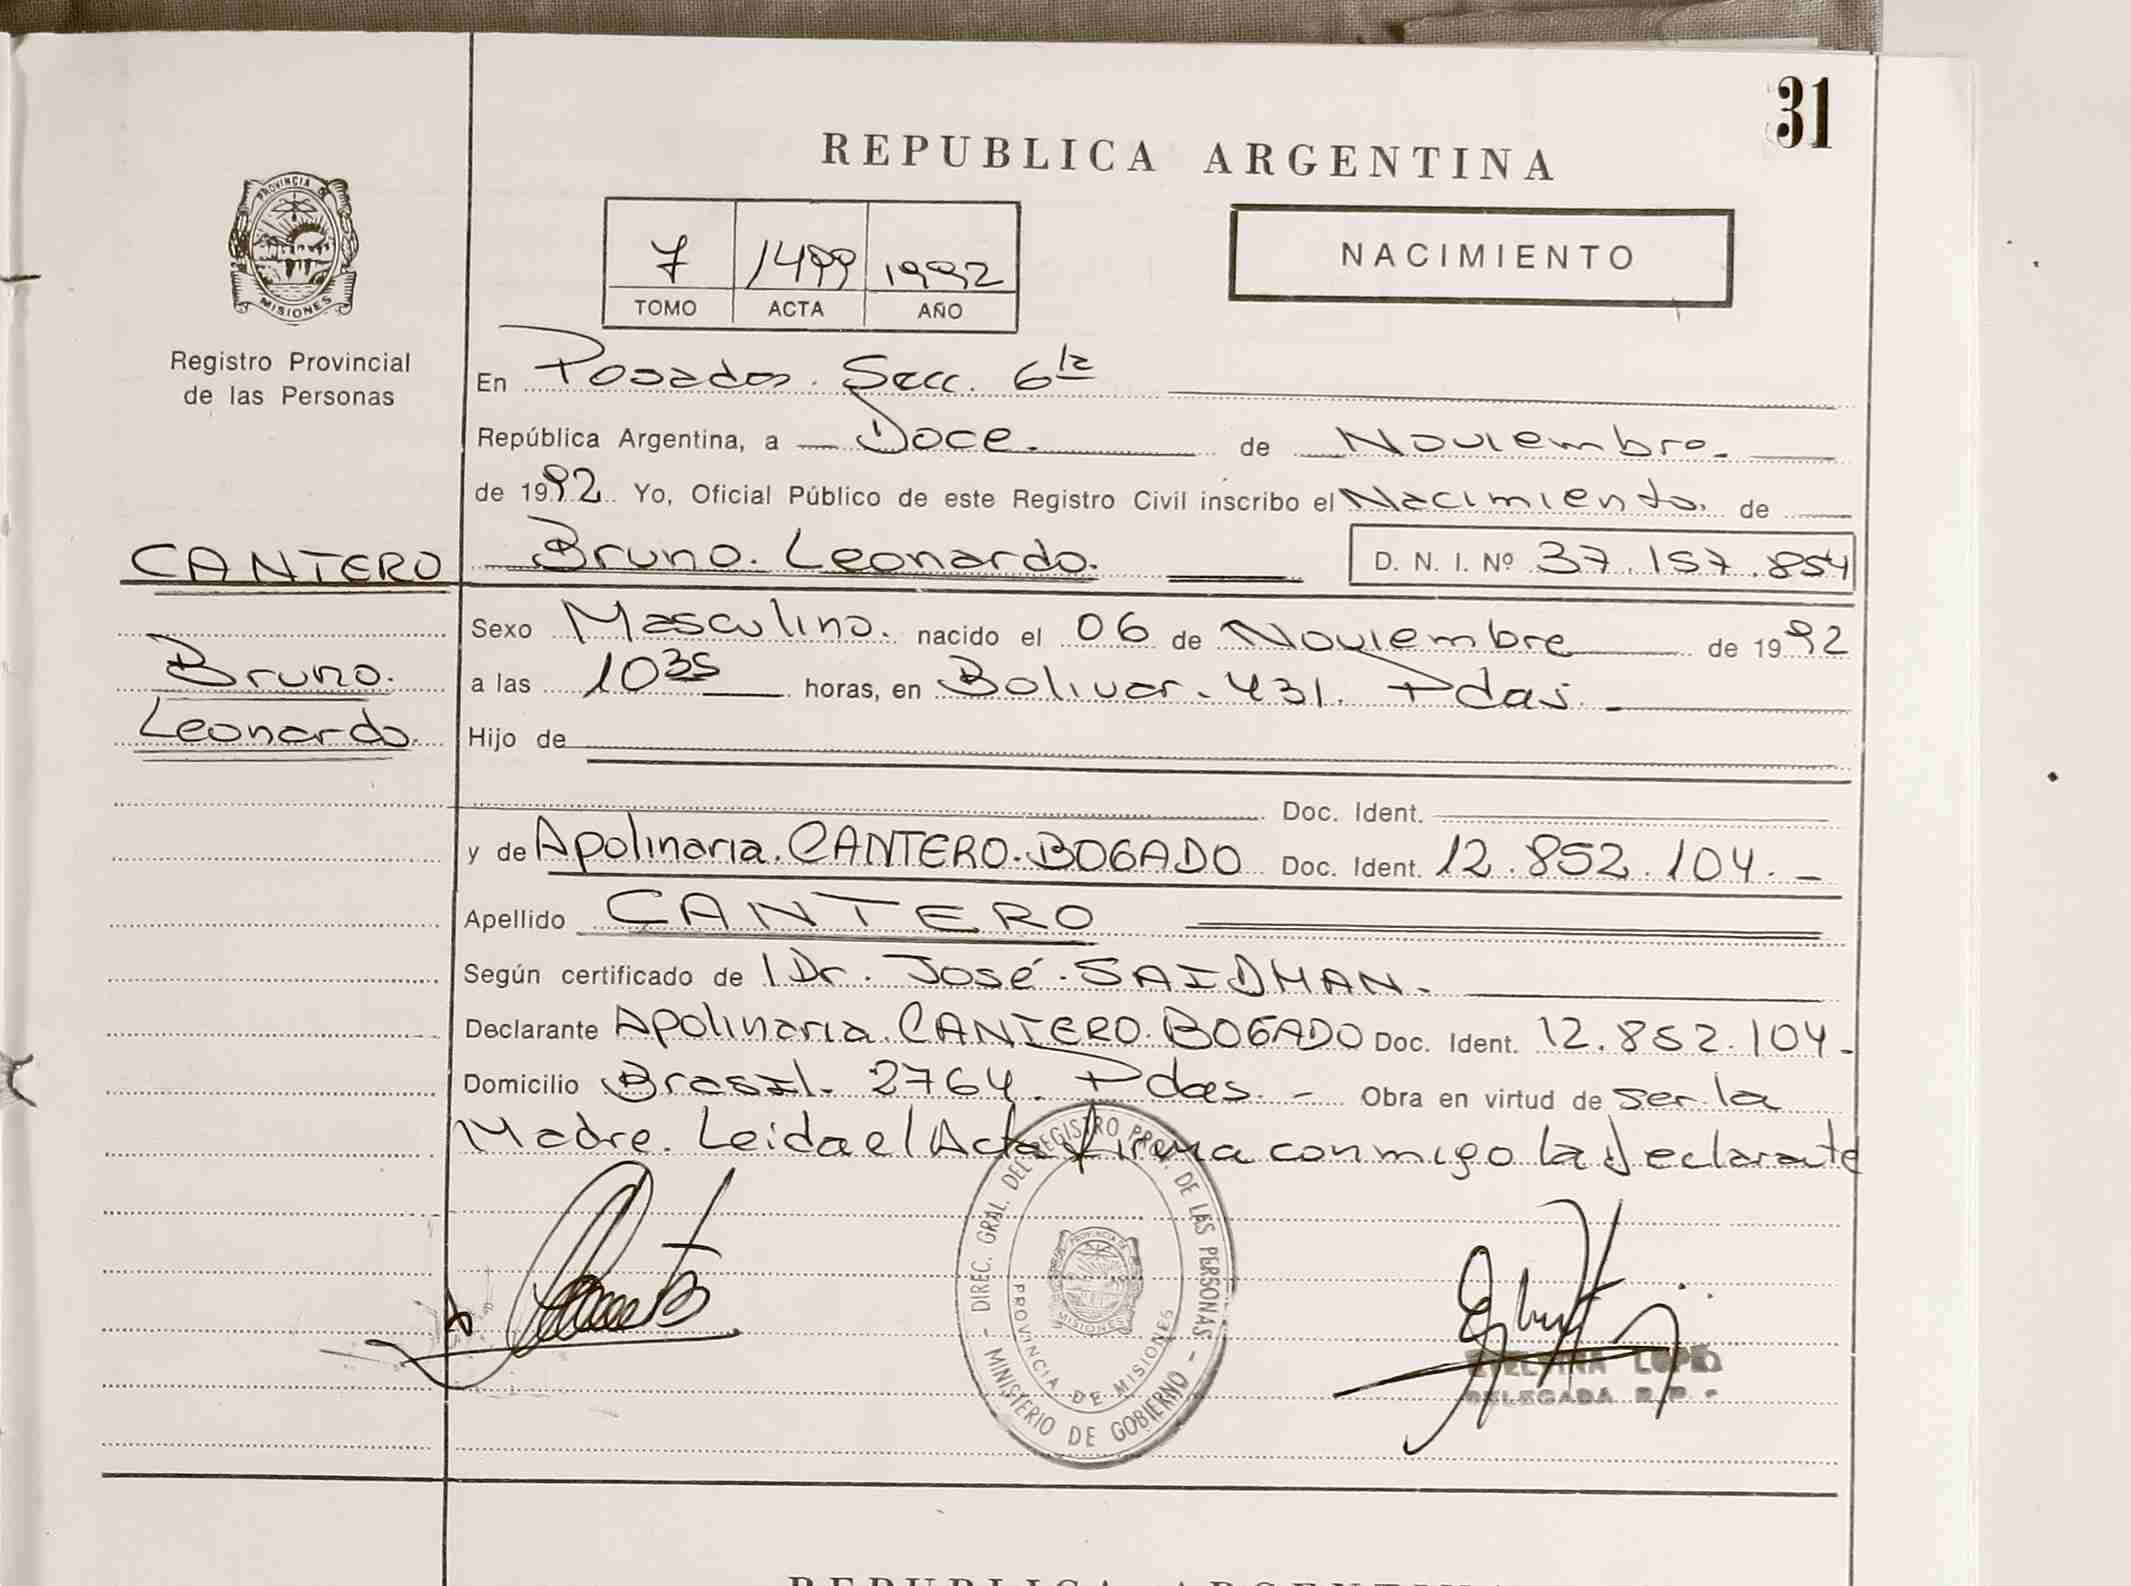 31
REPUBLICA ARGENTINA
PROVINCIA DE
MISIONES
Registro Provincial
de las Personas
7 1499 1992
TOMO ACTA AÑO
NACIMIENTO
En Posadas. Secc. 6ta
República Argentina, a Doce. de Noviembre.
de 1992 Yo, Oficial Público de este Registro Civil inscribo el Nacimiento. de
CANTERO Bruno. Leonardo. D. N. I. Nº 37.157.854
Sexo Masculino. nacido el 06 de Noviembre de 1992
Bruno. a las 10 35 horas, en Bolivar. 431. Pdas.
Leonardo. Hijo de
Doc. Ident.
y de Apolinaria. CANTERO. BOGADO Doc. Ident. 12.852.104. -
Apellido CANTERO
Según certificado de 1 Dr. José. SAIDMAN.
Declarante Apolinaria. CANTERO. BOGADO Doc. Ident. 12.852.104.-
Domicilio Brasil. 2764. Pdas. - Obra en virtud de ser la
Madre. Leida el Acta firma conmigo la declarante
DIREC. GRAL. DEL REGISTRO PROV. DE LAS PERSONAS - MINISTERIO DE GOBIERNO -
PROVINCIA DE MISIONES
PROVINCIA DE
MISIONES
LOPEZ
DELEGADA R. P.
REPUBLICA ARGENTINA